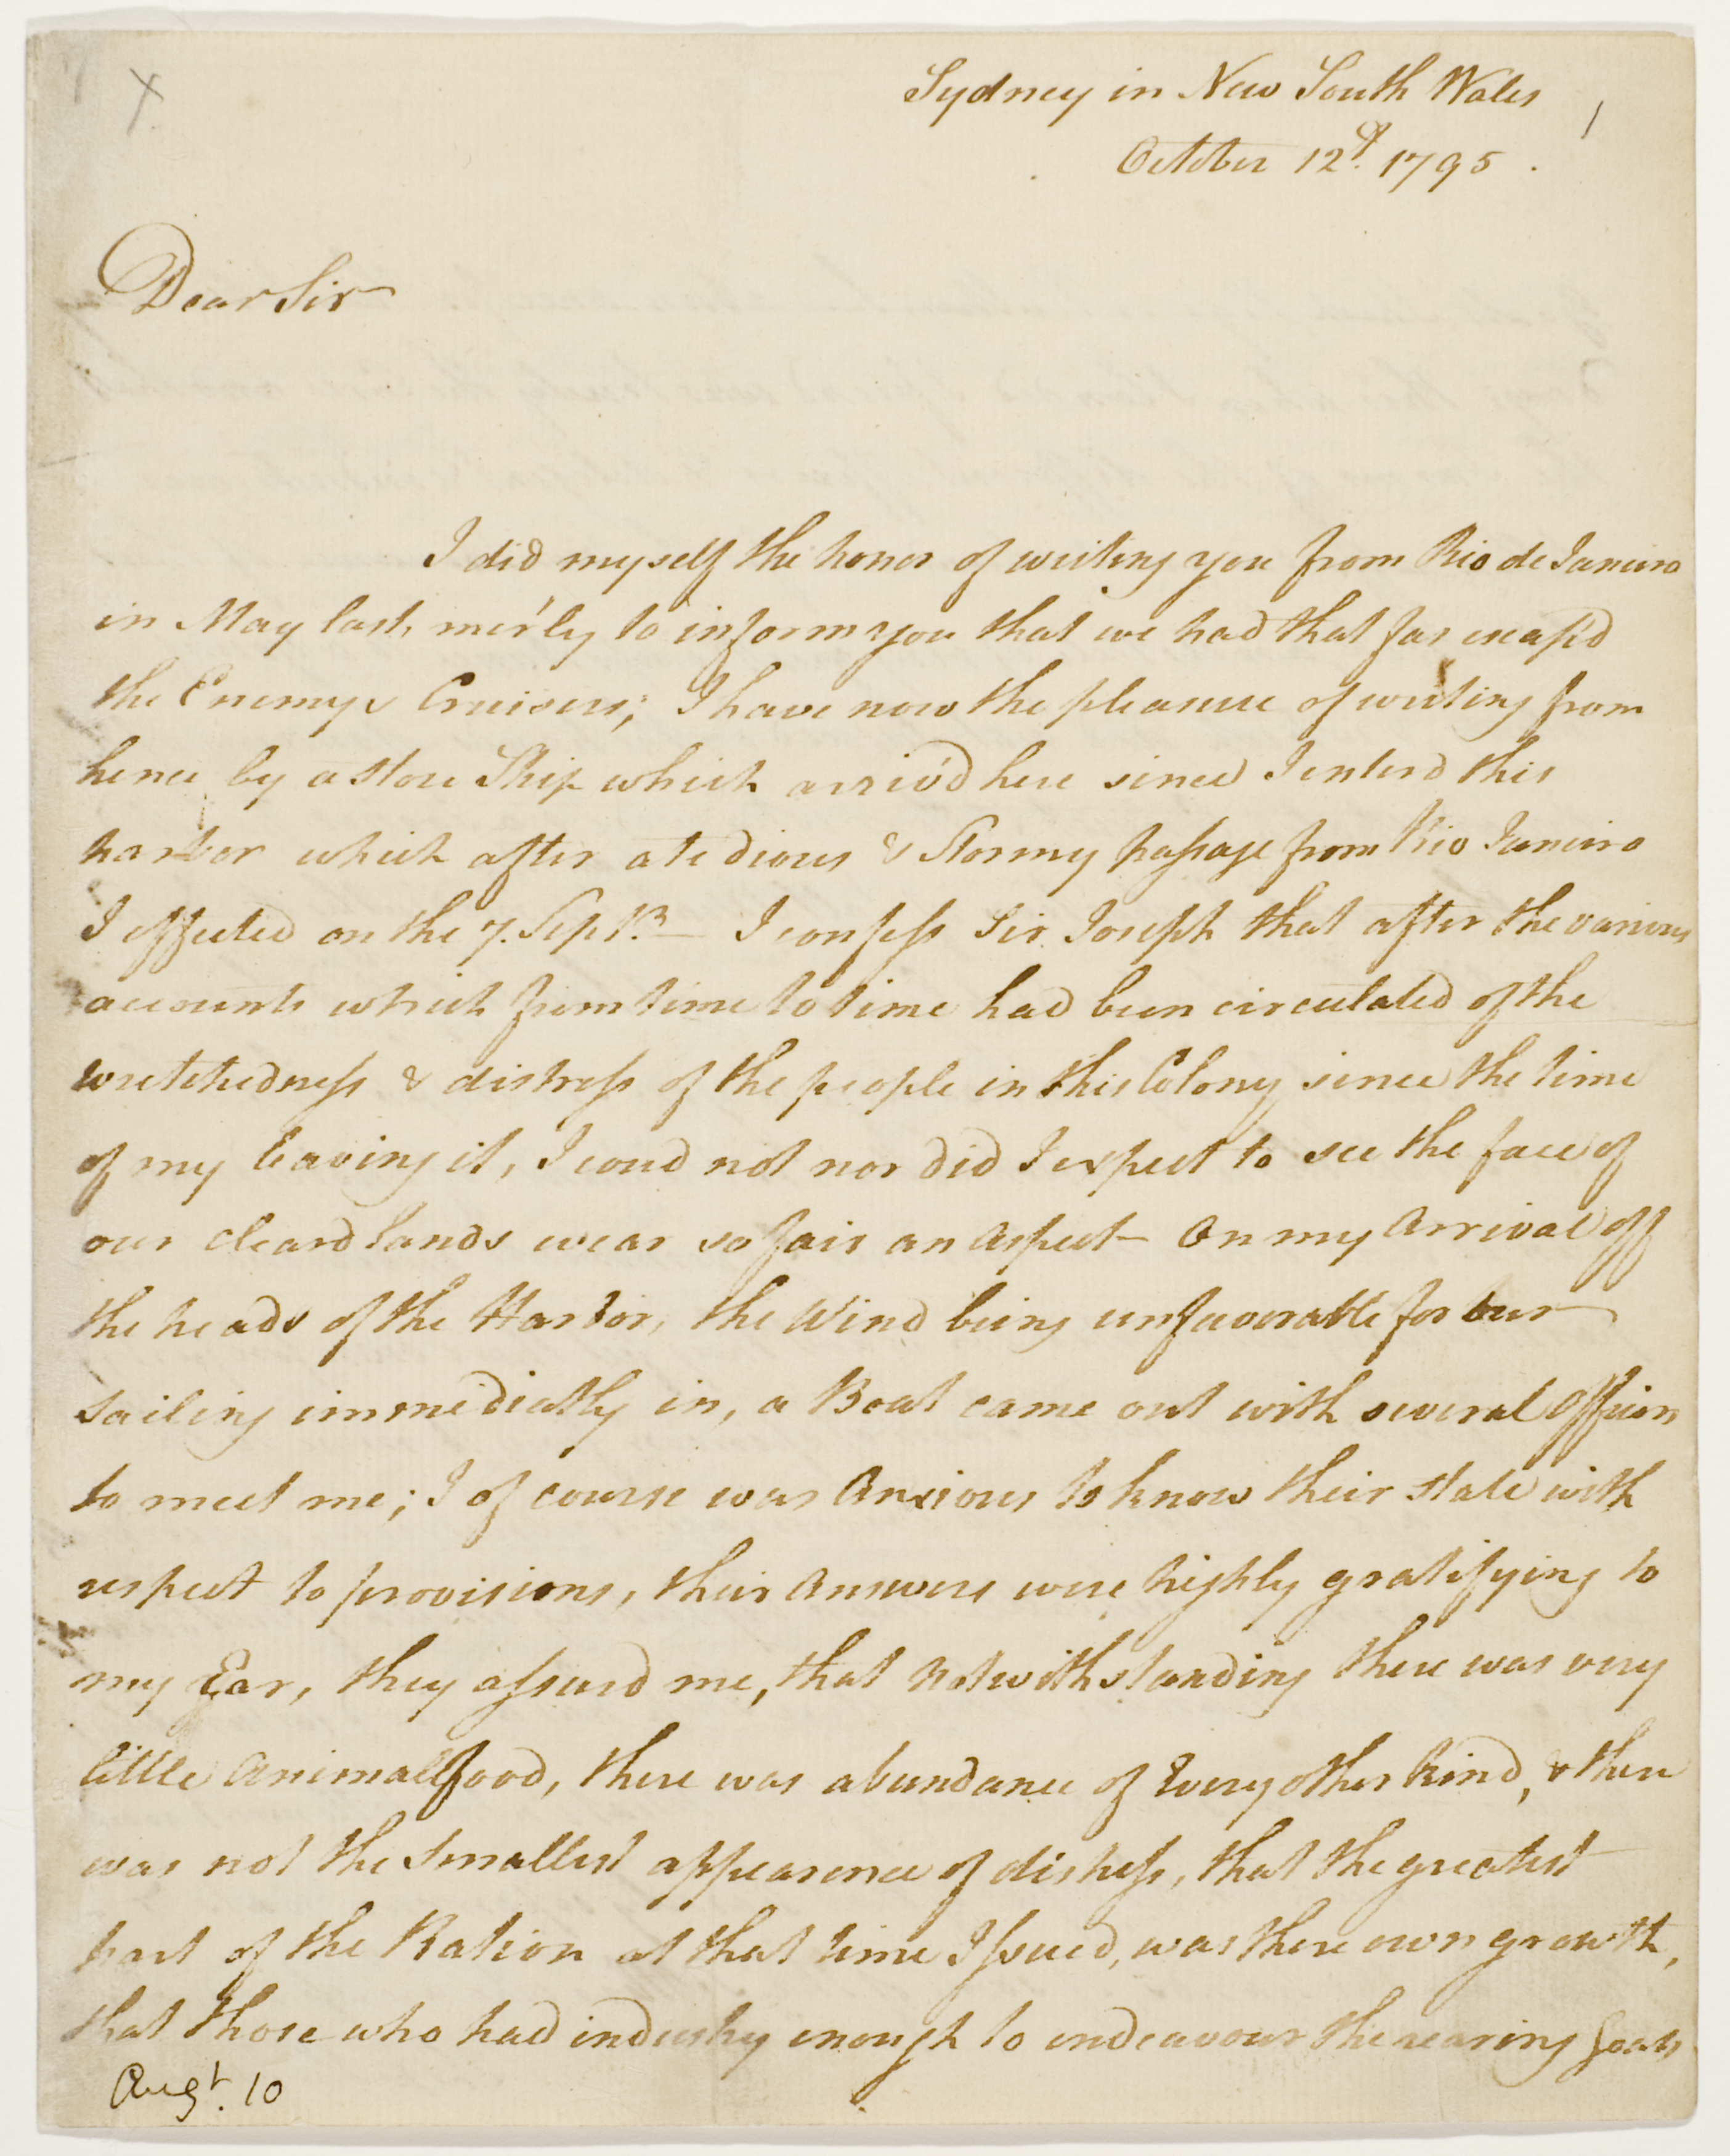 X
Sydney in New South Wales
1
October 12th. 1795.
Dear Sir
I did myself the honor of writing you from Rio de Janeiro
in May last, mer'ly to inform you that we had that far escap'd
the Enemys Cruisers; I have now the pleasure of writing from
hence by a store Ship which arriv'd here since I enterd this
harbor which after a tedious & Stormy passage from Rio Janeiro
I effected on the 7. Septr. — I confess Sir Joseph that after the various
accounts which from time to time had been circulated of the
wretchedness & distress of the people in this Colony since the time
of my leaving it, I coud not nor did I expect to see the face of
our cleard lands wear so fair an aspect — On my Arrival off
the heads of the Harbor, the Wind being unfavorable for our
sailing immediatly in, a Boat came out with several Officers
to meet me; I of course was Anxious to know their state with
respect to provisions, their Answers were highly gratifying to
my Ear, they assurd me, that Notwithstanding there was very
little Animal food, there was abundance of Every other kind, & there
was not the smallest appearence of distress, that the greatest
part of the Ration at that time Issued, was there own growth,
that those who had industry enough to endeavour the rearing Goats
Augt. 10